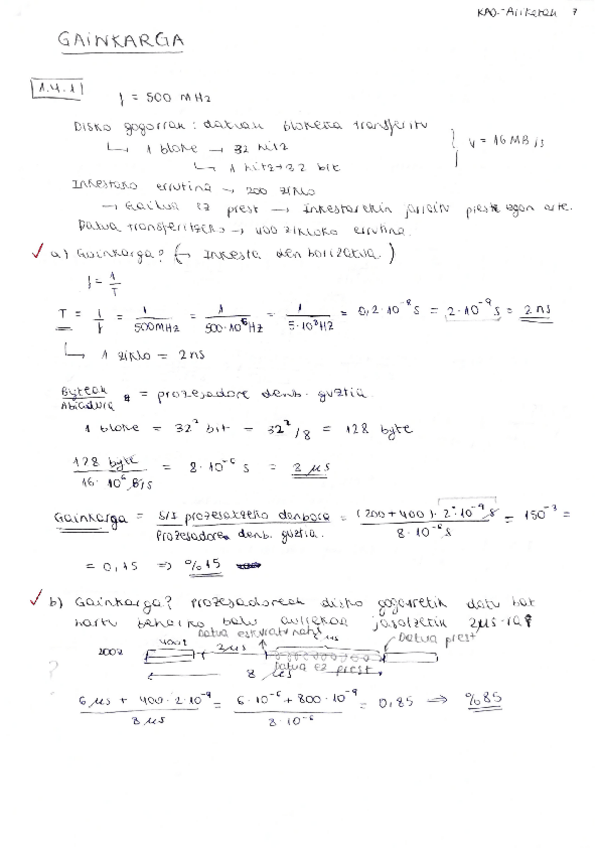 KAO-Ariketak 7
GAINKARGA
1.4.1
f = 500 MHz
Disko gogorrak: datuak bloketa transferitu
↳ 1 bloke → 32 hitz
↳ 1 hitz → 32 bit
} v = 16 MB/s
Inkestako errutina → 200 ziklo
→ Gailua ez prest → inkestarekin jarraitu preste egon arte.
Datua transferitzeko → 400 zikloko errutina.
✓ a) Gainkarga? (→ Inkesta denborizatua.)
f = 1/T
T = 1/f = 1/500MHz = 1/500·10⁶Hz = 1/5·10⁸HZ = 0,2·10⁻⁸ s = 2·10⁻⁹ s = 2 ns
↳ 1 ziklo = 2 ns
Byteak/Abiadura = prozesadore denb. guztia.
1 bloke = 32² bit = 32²/8 = 128 byte
128 byte/16·10⁶ B/s = 8·10⁻⁶ s = 8 μs
Gainkarga = S/I prozesatzeko denbora/Prozesadore denb. guztia. = (200+400)·2·10⁻⁹ s/8·10⁻⁶ s = 150⁻³ =
= 0,15 ⇒ %15
✓ b) Gainkarga? Prozesadoreak disko gogorretik datu bat
hartu beharko balu aurrekoa jasotzetik 2μs-ra?
Datua eskuratu nahi
200z 400z 2μs μs Datua prest
Datua ez prest
8 μs
?
6 μs + 400·2·10⁻⁹/8 μs = 6·10⁻⁶ + 800·10⁻⁹/8·10⁻⁶ = 0,85 ⇒ %85